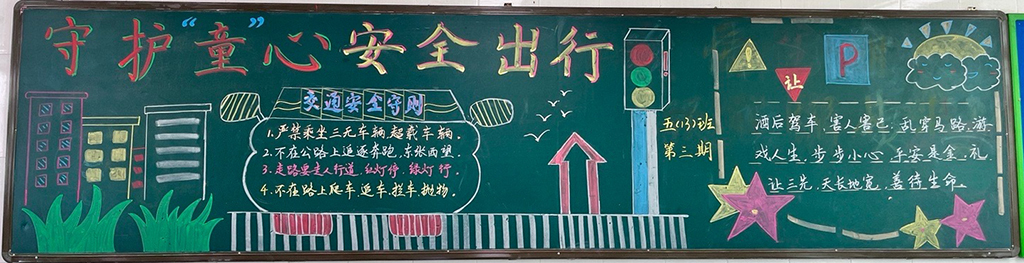 守护“童”心安全出行
交通安全守则
1.严禁乘坐三无车辆,超载车辆.
2.不在公路上追逐奔跑,东张西望.
3.走路要走人行道,红灯停,绿灯行.
4.不在路上爬车,追车,拦车,抛物.
五(13)班
第三期
让
P
酒后驾车,害人害己,乱穿马路,游
戏人生,步步小心,平安是金,礼
让三先,天长地宽,善待生命